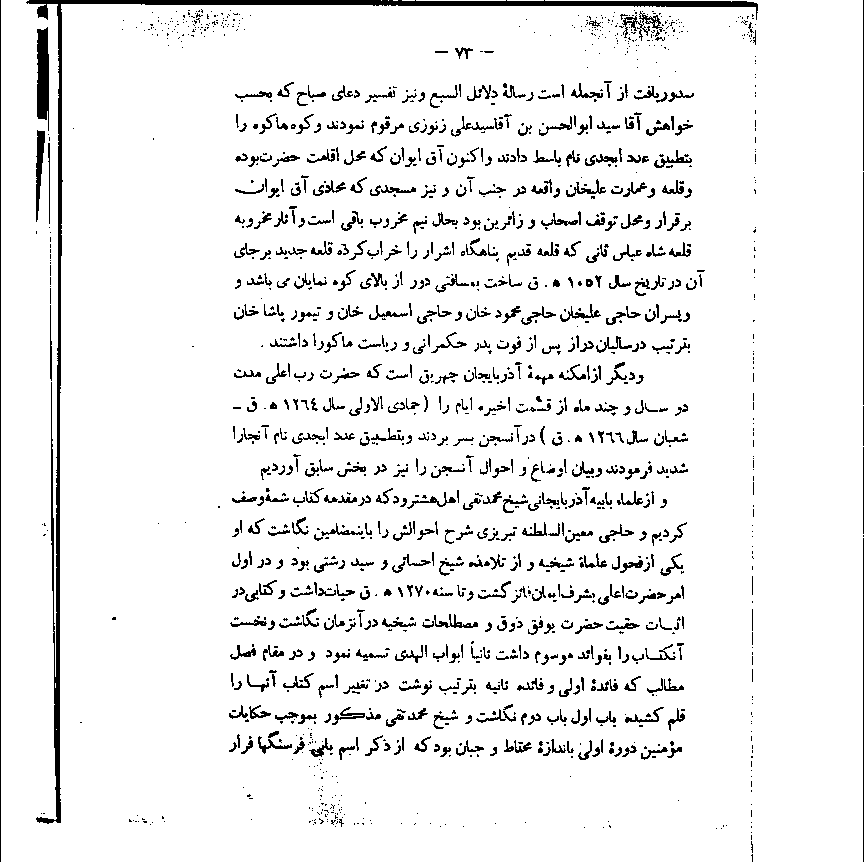 — ۷۳ —
صدوریافت از آنجمله است رسالهٔ دلائل السبع ونیز تفسیر دعای صباح که بحسب
خواهش آقا سید ابوالحسن بن آقاسیدعلی زنوزی مرقوم نمودند وکوه ماکوه را
بتطبیق عدد ابجدی نام باسط دادند واکنون آق ایوان که محل اقامت حضرت بوده
وقلعه وعمارت علیخان واقعه در جنب آن و نیز مسجدی که محاذی آق ایوان
برقرار ومحل توقف اصحاب و زائرین بود بحال نیم مخروب باقی است و آثار مخروبه
قلعه شاه عباس ثانی که قلعه قدیم پناهگاه اشرار را خراب کرده قلعه جدید برجای
آن در تاریخ سال ۱۰۵۲ ه . ق ساخت بمسافتی دور از بالای کوه نمایان می باشد و
وپسران حاجی علیخان حاجی محمود خان و حاجی اسمعیل خان و تیمور پاشا خان
بترتیب درسالیان دراز پس از فوت پدر حکمرانی و ریاست ماکورا داشتند .
ودیگر ازامکنه مهمهٔ آذربایجان چهریق است که حضرت رب اعلی مدت
دو سال و چند ماه از قسمت اخیره ایام را ( جمادی الاولی سال ۱۲۶٤ ه . ق ـ
شعبان سال ۱۲۶۶ ه . ق ) درآنسجن بسر بردند وبتطبیق عدد ابجدی نام آنجارا
شدید فرمودند وبیان اوضاع و احوال آنسجن را نیز در بخش سابق آوردیم
و ازعلماء بابیه آذربایجانی شیخ محمدتقی اهل هشترود که درمقدمه کتاب شمهٔ وصف
کردیم و حاجی معین السلطنه تبریزی شرح احوالش را باینمضامین نگاشت که او
یکی ازفحول علماء شیخیه و از تلامذه شیخ احسائی و سید رشتی بود و در اول
امر حضرت اعلی بشرف ایمان فائز گشت و تا سنه ۱۲۷۰ ه . ق حیات داشت و کتابی در
اثبات حقیت حضرت بوفق ذوق و مصطلحات شیخیه درآنزمان نگاشت ونخست
آنکتاب را بفوائد موسوم داشت ثانیاً ابواب الهدی تسمیه نمود و در مقام فصل
مطالب که فائدهٔ اولی و فائده ثانیه بترتیب نوشت در تغییر اسم کتاب آنها را
قلم کشیده باب اول باب دوم نگاشت و شیخ محمدتقی مذکور بموجب حکایات
مؤمنین دورهٔ اولی باندازهٔ محتاط و جبان بود که از ذکر اسم بابی فرسنگها فرار